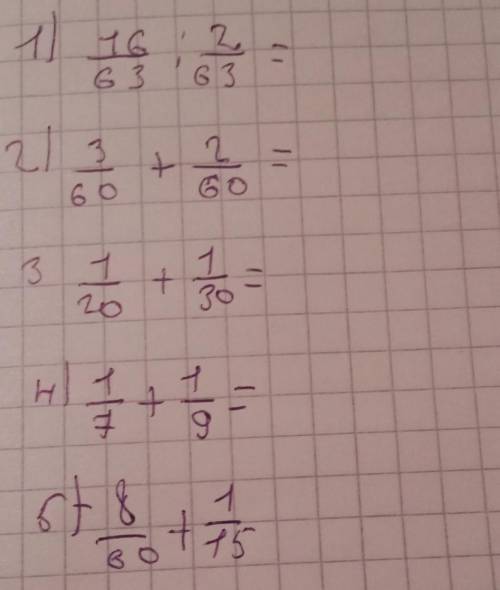 1) 16/63 : 2/63 =
2) 3/60 + 2/60 =
3 1/20 + 1/30 =
4) 1/7 + 1/9 =
5) - 8/60 + 1/15